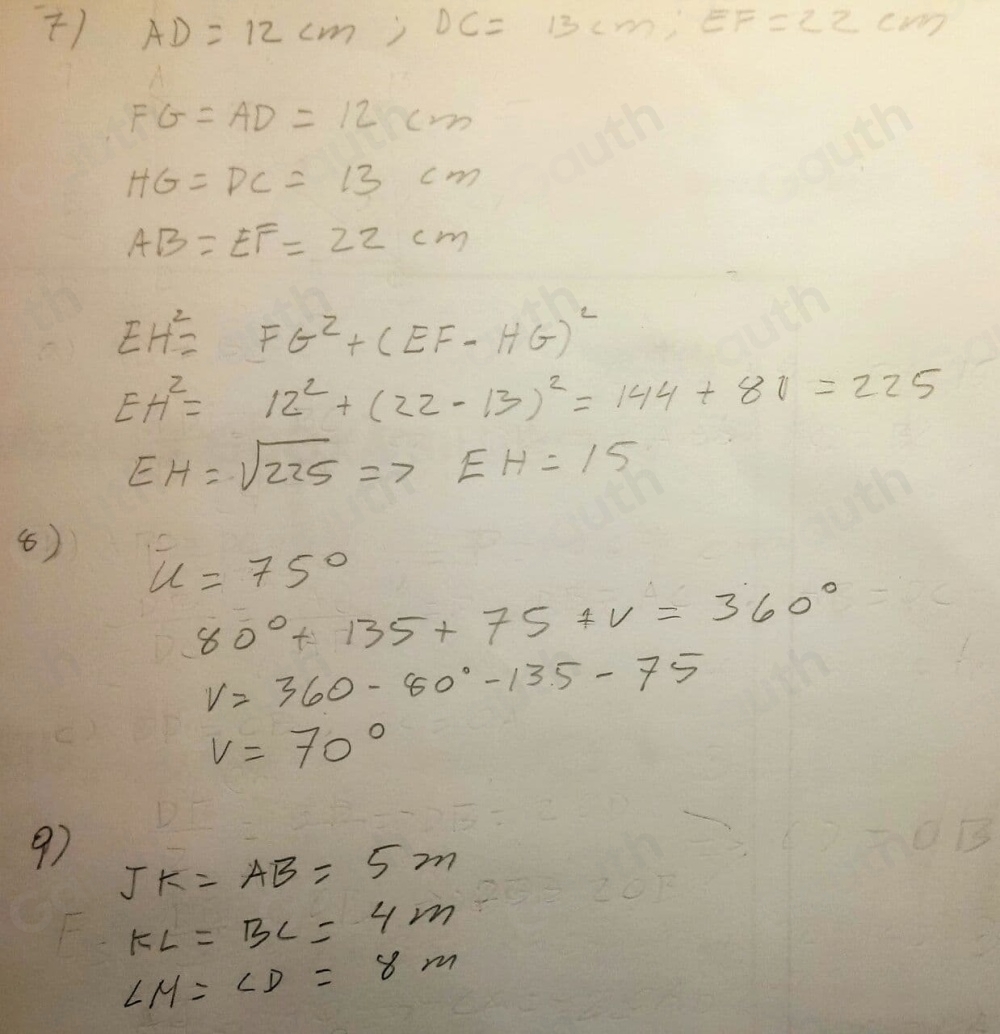 7) AD = 12 cm ; DC = 13 cm ; EF = 22 cm
FG = AD = 12 cm
HG = DC = 13 cm
AB = EF = 22 cm
EH² = FG² + (EF - HG)²
EH² = 12² + (22 - 13)² = 144 + 81 = 225
EH = √225 => EH = 15
8)
u = 75°
80° + 135 + 75 + v = 360°
v = 360 - 80° - 135 - 75
v = 70°
9)
JK = AB = 5 m
KL = BC = 4 m
LM = CD = 8 m